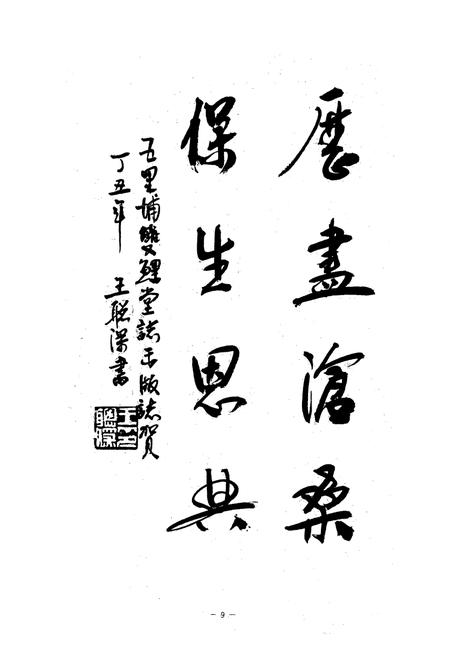 歷盡滄桑
保生恩典
五里埔雙鯉堂誌出版誌賀
丁丑年 王聰深書
- 9 -